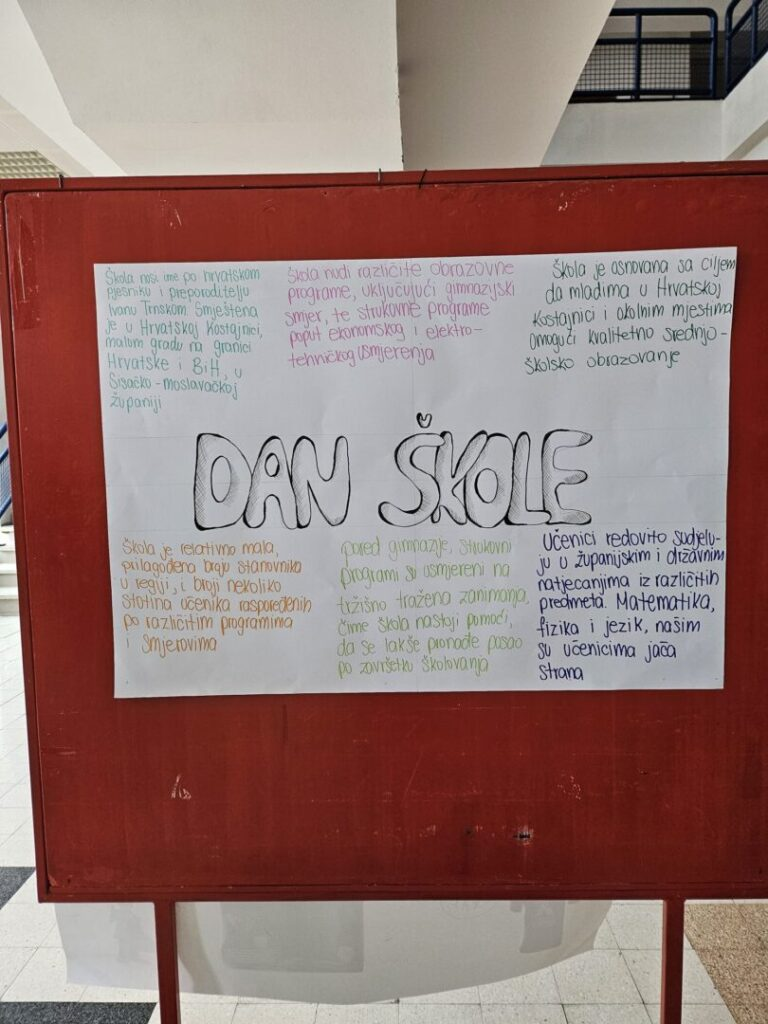 Škola nosi ime po hrvatskom
pjesniku i preporoditelju
Ivanu Trnskom. Smještena
je u Hrvatskoj Kostajnici,
malom gradu na granici
Hrvatske i BiH, u
Sisačko-moslavačkoj
županiji
Škola nudi različite obrazovne
programe, uključujući gimnazijski
smjer, te strukovne programe
poput ekonomskog i elektro-
tehničkog usmjerenja
Škola je osnovana sa ciljem
da mladima u Hrvatskoj
Kostajnici i okolnim mjestima
omogući kvalitetno srednjo-
školsko obrazovanje
DAN ŠKOLE
Škola je relativno mala,
prilagođena broju stanovnika
u regiji, i broji nekoliko
stotina učenika raspoređenih
po različitim programima
i smjerovima
pored gimnazije, strukovni
programi su usmjereni na
tržišno tražena zanimanja,
čime škola nastoji pomoći,
da se lakše pronađe posao
po završetku školovanja
Učenici redovito sudjelu-
ju u županijskim i državnim
natjecanjima iz različitih
predmeta. Matematika,
fizika i jezik, našim
su učenicima jača
strana